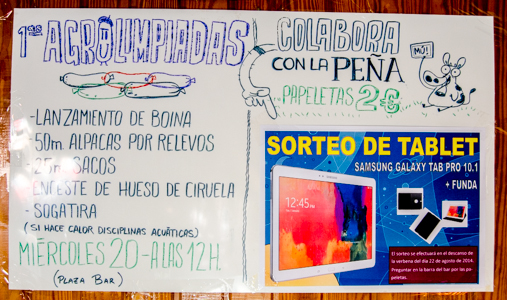 1as AGROLUMPIADAS
- LANZAMIENTO DE BOINA
- 50m. ALPACAS POR RELEVOS
- 25m. SACOS
- ENFESTE DE HUESO DE CIRUELA
- SOGATIRA
(SI HACE CALOR DISCIPLINAS ACUÁTICAS)
MIÉRCOLES 20 - A LAS 12H.
(PLAZA BAR)
COLABORA
CON LA PEÑA
PAPELETAS 2€
MÚ!
SORTEO DE TABLET
SAMSUNG GALAXY TAB PRO 10.1
+ FUNDA
12:45
El sorteo se efectuara en el descanso de
la verbena del dia 22 de agosto de 2014.
Preguntar en la barra del bar por las pa
peletas.